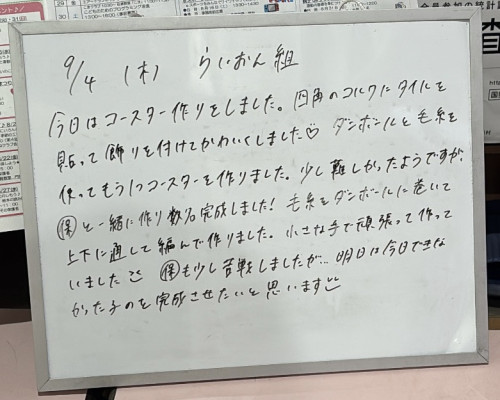 9/4 (木) らいおん組
今日はコースター作りをしました。四角のコルクにタイルを
貼って飾りを付けてかわいくしました♡ ダンボールと毛糸を
使ってもう1つコースターを作りました。少し難しかったようですが、
保と一緒に作り数名完成しました! 毛糸をダンボールに巻いて
上下に通して編んで作りました。小さな手で頑張って作って
いました 保も少し苦戦しましたが… 明日は今日できな
かった子のを完成させたいと思います